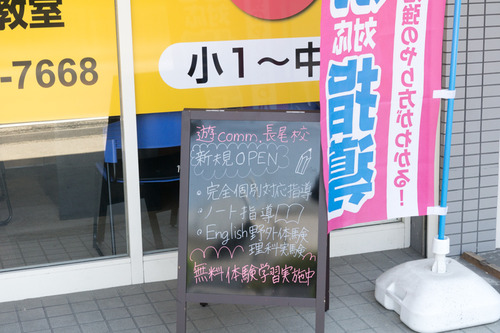 教室
-7668
小1〜中
対応
指導
強のやり方がわかる!
遊comm.長尾校
新規OPEN
・完全個別対応指導
・ノート指導
・English野外体験
理科実験
無料体験学習実施中